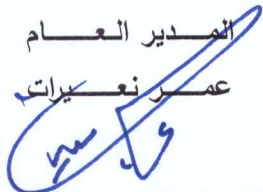 المدير العام
عمر نعيرات